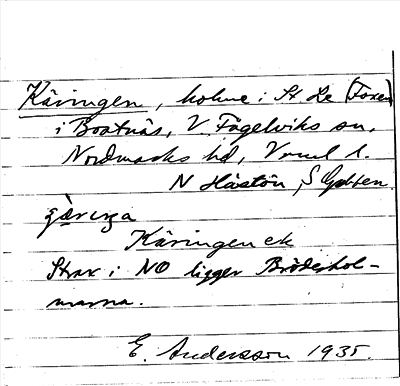 Käringen, holme i St Le (Foxen)
i Boatnäs, V. Fågelviks sn,
Nordmarks hd, Vrml l.
N Håstön, S Gubben.
Käringen ek
Strax i NO ligger Brödehol-
marna.
E. Andersson 1935.